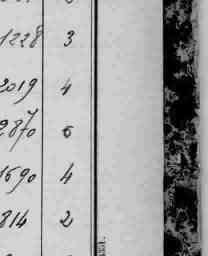 1228 3
2019 4
2870 6
1690 4
814 2